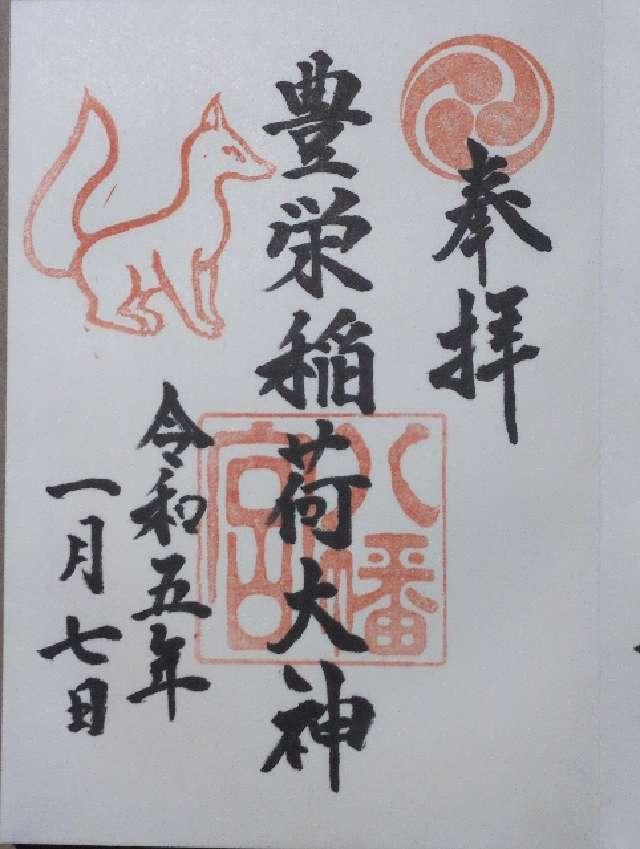 奉拝
豊栄稲荷大神
八幡宮
令和五年
一月七日